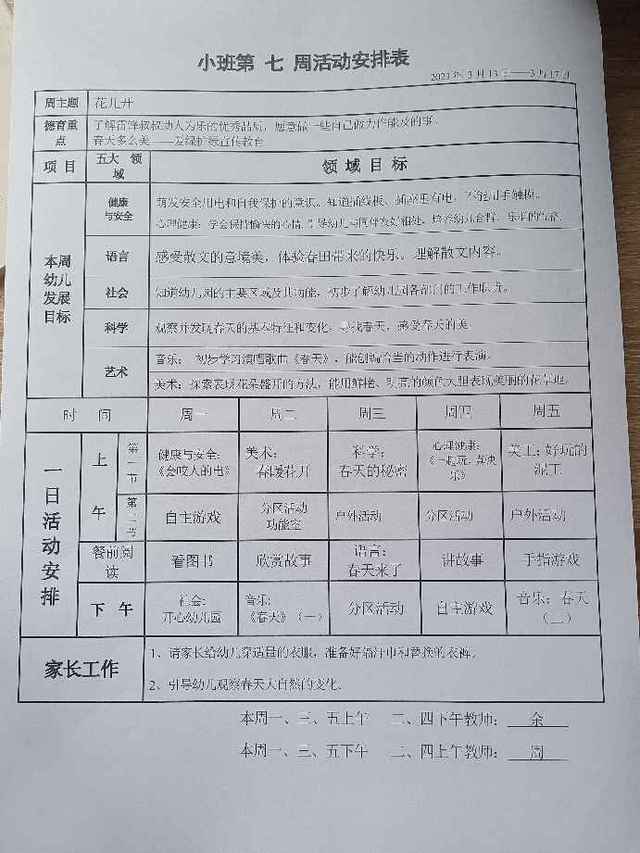 小班第 七 周活动安排表
2023年3月13日——3月17日
周主题 花儿开
德育重点 了解雷锋叔叔助人为乐的优秀品质，愿意做一些自己做力所能及的事。
春天多么美——爱绿护绿宣传教育
项 目 五大 领域 领 域 目 标
本周幼儿发展目标
健康与安全 萌发安全用电和自我保护的意识。知道插线板、插座里有电，不能用手触摸。
心理健康：学会保持愉快的心情，引导幼儿与同伴友好相处，培养幼儿合群、乐群的性格。
语言 感受散文的意境美，体验春田带来的快乐。理解散文内容。
社会 知道幼儿园的主要区域及其功能，初步了解幼儿园各部门的工作职责。
科学 观察并发现春天的基本特征和变化，寻找春天，感受春天的美
艺术 音乐： 初步学习演唱歌曲《春天》，能创编恰当的动作进行表演。
美术：探索表现花朵盛开的方法，能用鲜艳、明亮的颜色大胆表现美丽的花草地。
时 间 周一 周二 周三 周四 周五
一日活动安排
上午 第一节 健康与安全：《会咬人的电》 美术：春暖花开 科学：春天的秘密 心理健康：《一起玩，真快乐》 美工：好玩的泥工
第二节 自主游戏 分区活动 功能室 户外活动 分区活动 户外活动
餐前阅读 看图书 欣赏故事 语言：春天来了 讲故事 手指游戏
下 午 社会：开心幼儿园 音乐：《春天》（一） 分区活动 自主游戏 音乐：春天（二）
家长工作 1、请家长给幼儿穿适量的衣服，准备好隔汗巾和替换的衣裤。
2、引导幼儿观察春天大自然的变化。
本周一、三、五上午 二、四下午教师： 余
本周一、三、五下午 二、四上午教师： 周